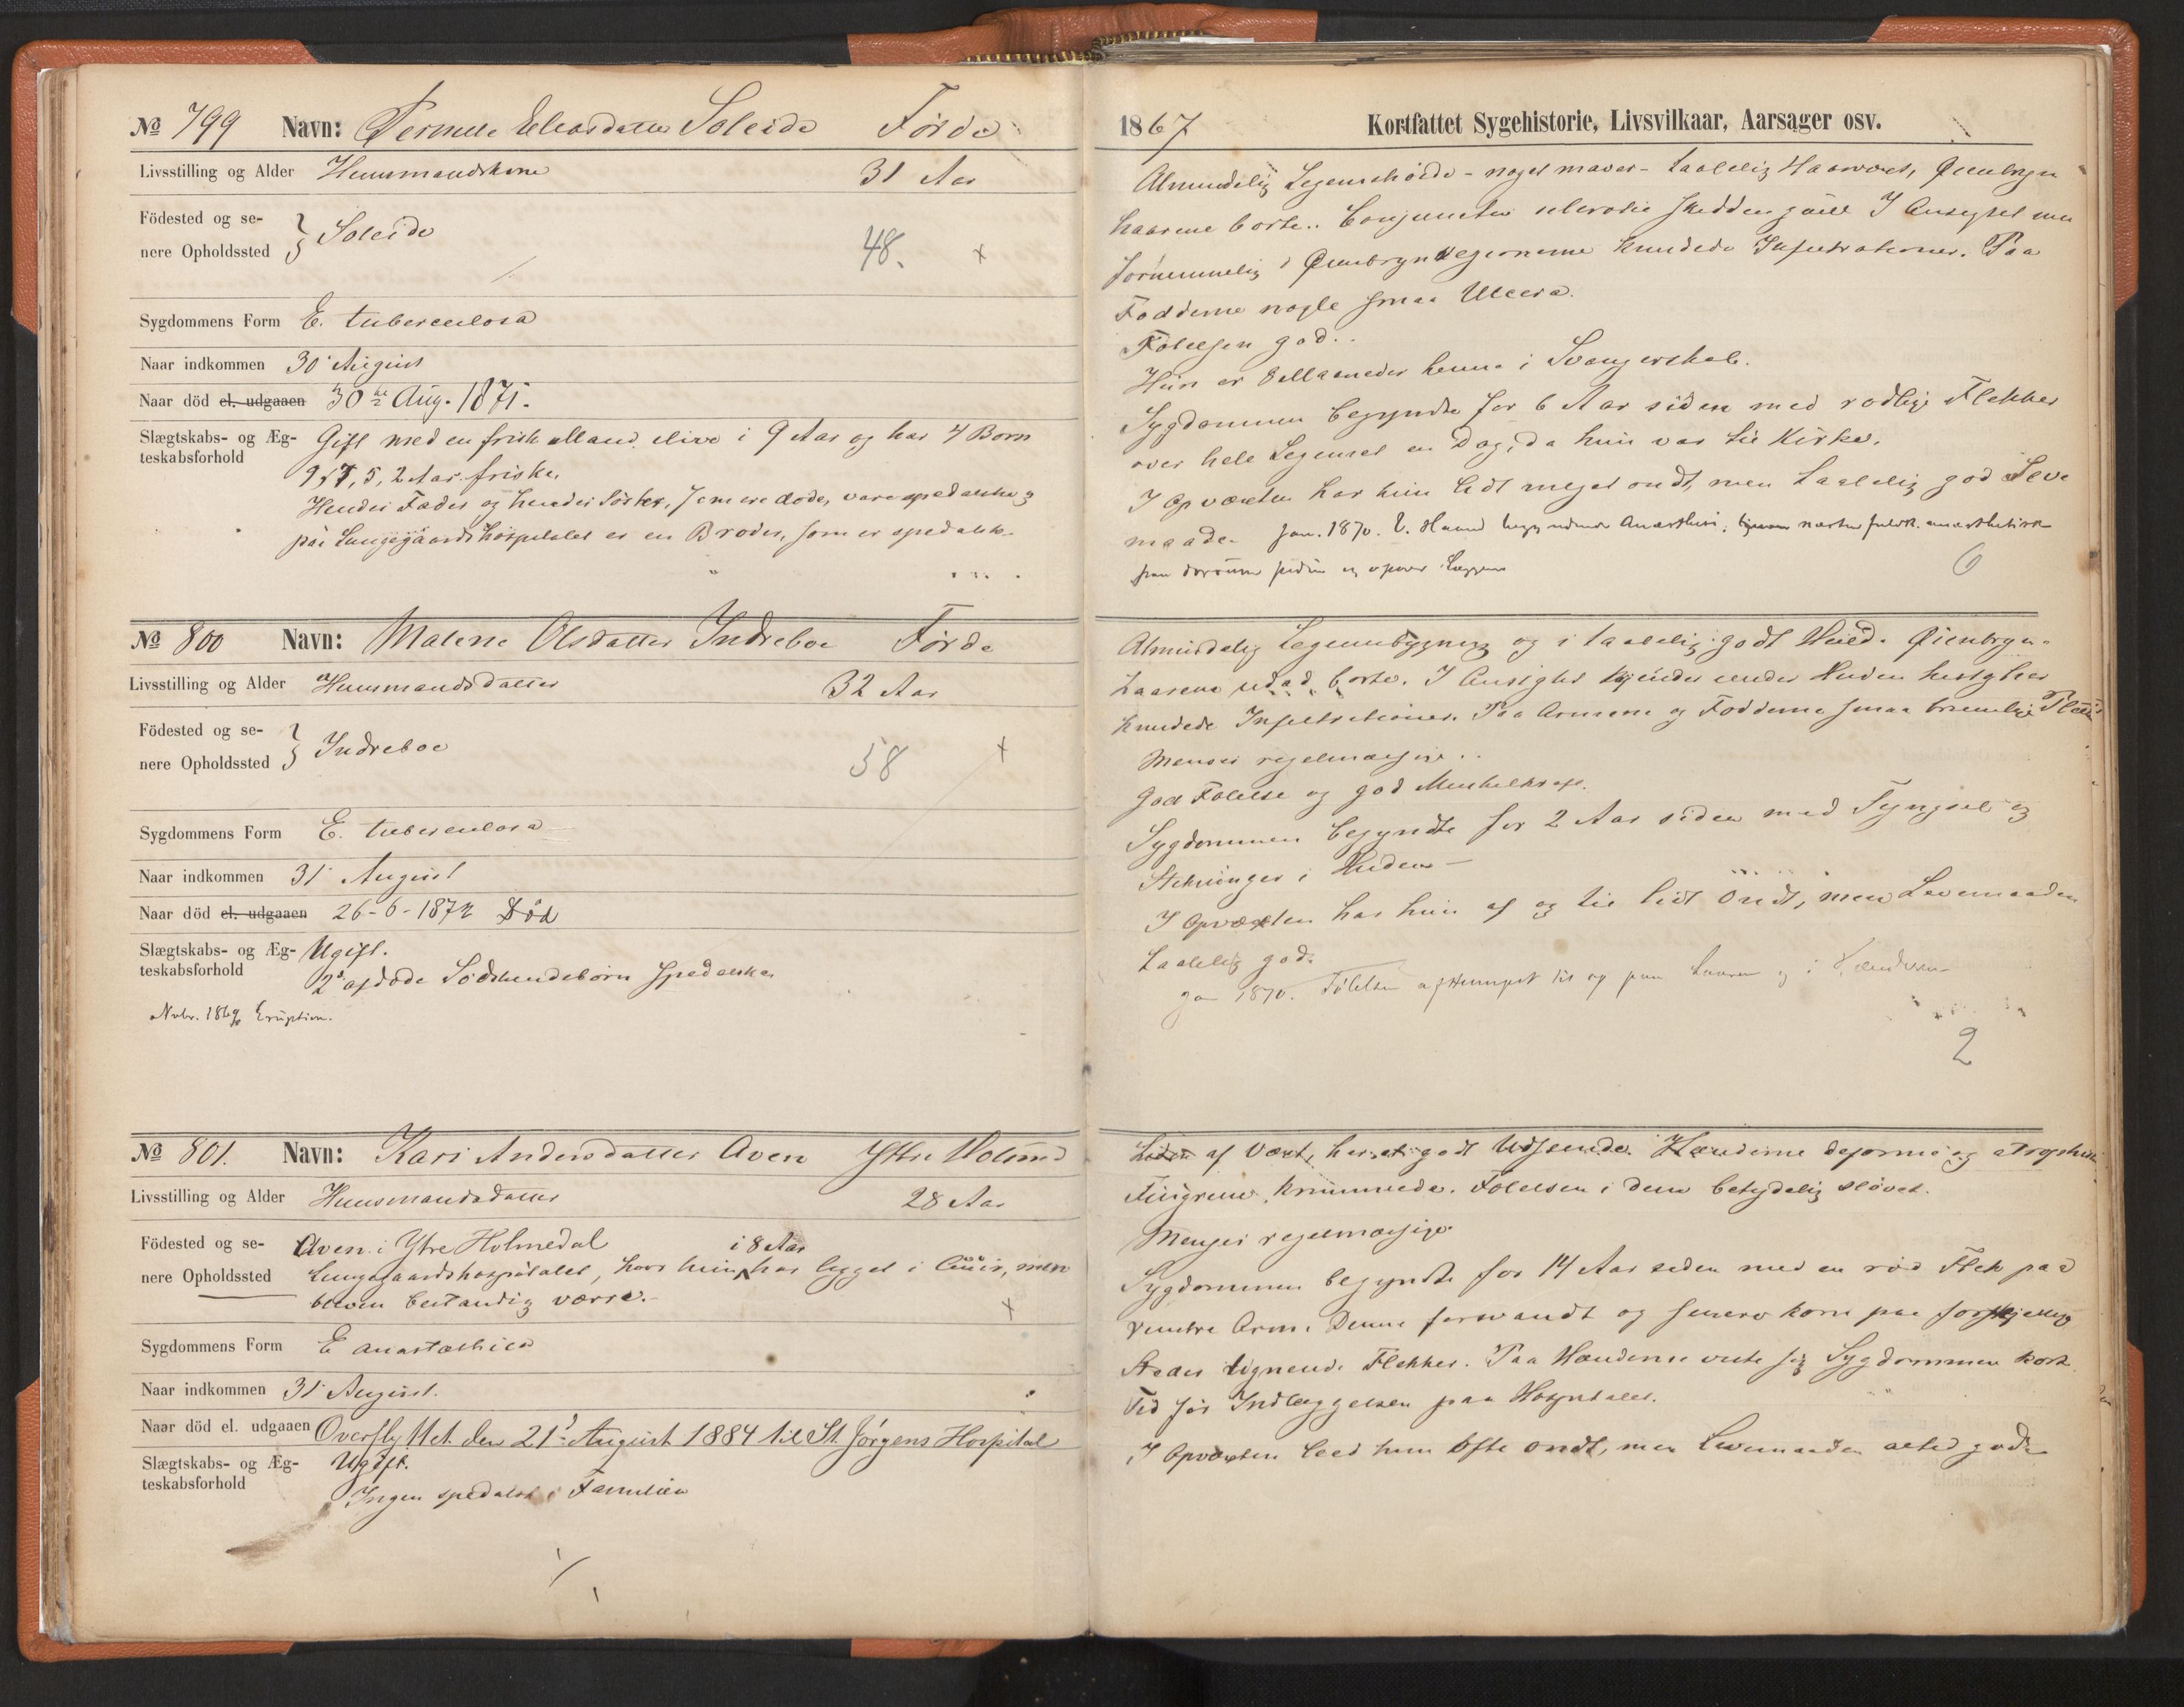 № 799 Navn: Pernille Eliasdatter Soleide Førde
Livsstilling og Alder Huusmandskone 31 Aar
Födested og se-
nere Opholdssted } Soleide 48. x
Sygdommens Form E. tuberculosa
Naar indkommen 30 August
Naar död el. udgaaen 30 te Aug. 1871.
Slægtskabs- og Æg-
teskabsforhold
Gift med en frisk Mand ilive i 9 Aar og har 4 Børn
9, 7, 5, 2 Aar friske.
Hendes Fader og hendes Søster, som ere døde, vare spedalske og
paa Lungegaardshospitalet er en Broder, som er spedalsk.
№ 800 Navn: Malene Olsdatter Indreboe Førde
Livsstilling og Alder Huusmandsdatter 32 Aar
Födested og se-
nere Opholdssted } Indreboe 58 x
Sygdommens Form E. tuberculosa
Naar indkommen 31 August
Naar död el. udgaaen 26-6-1872 Død
Slægtskabs- og Æg-
teskabsforhold
Ugift.
2 afdøde Sødskendebørn spedalske
Novbr. 1869 Eruption.
№ 801. Navn: Kari Andersdatter Aven Ytre Holmed
Livsstilling og Alder Huusmandsdatter 28 Aar
Födested og se-
nere Opholdssted
Aven i Ytre Holmedal
i 8 Aar
Lungegaardshospitalet, hvor hun har ligget i Cuur, men
bleven bestandig værre.
x
Sygdommens Form E anæstethica
Naar indkommen 31 August.
Naar död el. udgaaen Overflyttet den 21 August 1884 til St Jørgens Hospital
Slægtskabs- og Æg-
teskabsforhold
Ugift.
Ingen spedalsk i Familien
1867 Kortfattet Sygehistorie, Livsvilkaar, Aarsager osv.
Almindelig Legemshøide - noget mager - taalelig Haarvæxt, Øienbryn
haarene borte. Conjunctiva sclerotic smudsiggul I Ansigtet men
fornemmelig i Øienbrynregionerne knudede Infiltrationer. Paa
Fødderne nogle smaa Ulcera.
Følelsen god.
Hun er 8 Maaneder henne i Svangerskab.
Sygdommen begyndte for 6 Aar siden med rødlige Flekker
over hele Legemet en Dag, da hun var til Kirke.
I Opvæxten har hun lidt meget ondt, men taalelig god Leve
maade. Jan. 1870. V. Haand begyndende Anæsthesi; næsten fuldst. anæsthetisk
paa dorsum pedum og opover Læggene
6
Almindelig Legemsbygning og i taalelig godt Huld. Øienbryn-
haarene udad borte. I Ansigtet kjendes under Huden
knudede Infiltrationer. Paa Armene og Fødderne smaa bruunlige Pletter
Menses regelmæssige.
God Følelse og god Muskelkraft.
Sygdommen begyndte for 2 Aar siden med Tyngsel og
Stikninger i Huden -
I Opvæxten har hun af og til lidt Ondt, men Levemaaden
taalelig god.
Jan 1870. Følelsen afstumpet til op paa Laaren og i Hænderne
2
Liden af Væxt, har et godt Udseende. Hænderne deforme og atrophiske
Fingrene krummede. Følelsen i dem betydelig sløvet.
Menses regelmæssige.
Sygdommen begyndte for 14 Aar siden med en rød Flek paa
venstre Arm. Denne forsvandt og senere kom paa forskjellige
Steder lignende Flekker. Paa Hænderne viste sig Sygdommen kort
Tid før Indlæggelsen paa Hospitalet.
I Opvæxten leed hun ofte ondt, men Levemaaden altid god